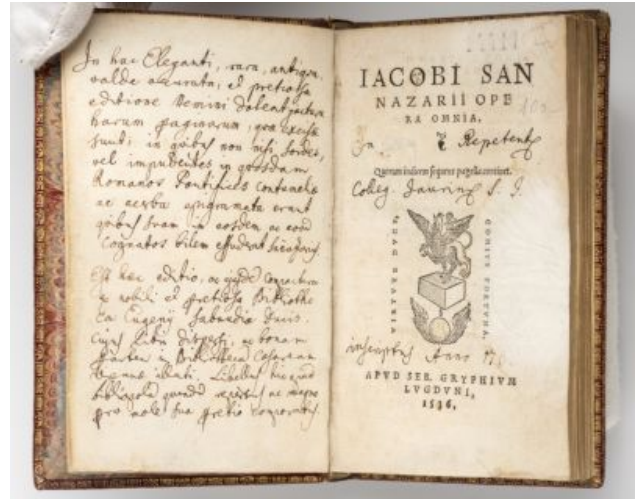 In hac Eleganti, rara, antiqua,
valde accurata, et pretiosa
editione Nemini doleat jactura
harum paginarum, quae excisae
sunt; in quibus non nisi sordes,
vel impudentes in quosdam
Romanos Pontifices contumeliae
ac acerba epigrammata erant
quibus suam in eosdem ac eorum
Cognatos bilem effuderat
Est haec editio, ac
e nobili et pretiosa Bibliothe
ca Eugenij Sabaudiae Ducis.
Cujus libri dispersi, ac bonam
partem in Bibliothecam Caesaream
illati. Libellus hic apud
bibliopolam ac magno
pro mole sua pretio comparatus.
IACOBI SAN
NAZARII OPE
RA OMNIA,
Quorum indicem sequens pagella continet.
Colleg. Jaurin. S. J.
VIRTUTE DUCE,
COMITE FORTUNA.
inscriptus Anno
APVD SEB. GRYPHIVM
LVGDVNI,
1536.